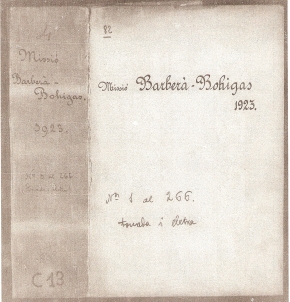 4
Missió
Barberà-
Bohigas.
1923.
Nº 1 al 266
C13
82
Missió Barberà-Bohigas
1923.
Nº 1 al 266.
tonada i lletra